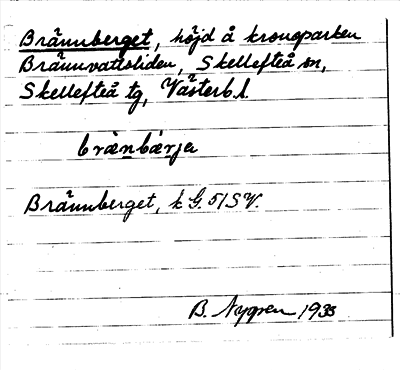 Brännberget, höjd å kronoparken
Brännvattsliden, Skellefteå sn,
Skellefteå tg, Västerb.l.
brä̀nbä́rja
Brännberget, k G. 51 SV.
B. Nygren 1935